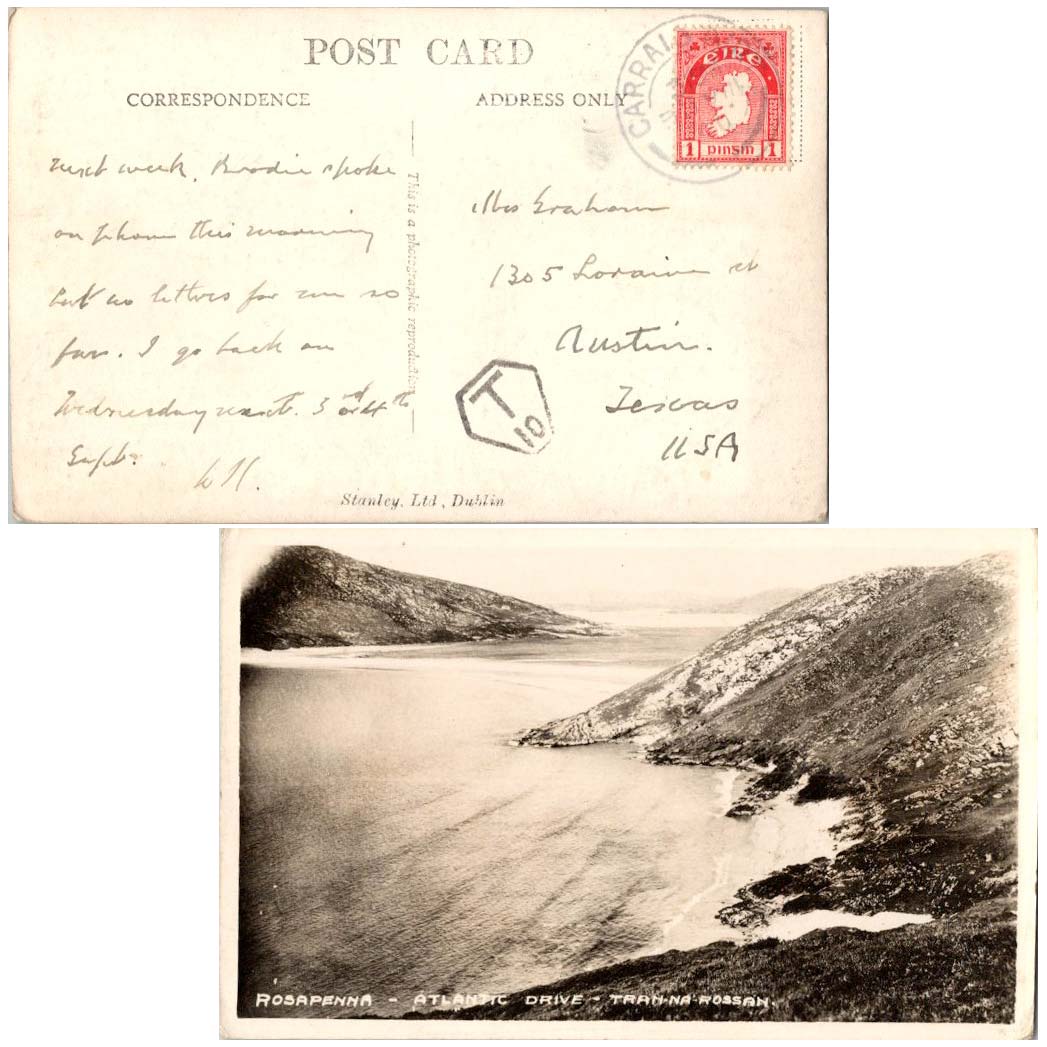 POST CARD
CORRESPONDENCE
ADDRESS ONLY
CARRAI
EIRE
1 pinsin 1
next week. Brodie spoke
on phone this morning
but no letters for me so
far. I go back on
Wednesday next. 3rd or 4th
Sept.
This is a photographic reproduction
Mrs Graham
1305 Loraine st
Austin.
Texas
USA
T
10
Stanley, Ltd, Dublin
ROSAPENNA - ATLANTIC DRIVE - TRAN-NA-ROSSAN.